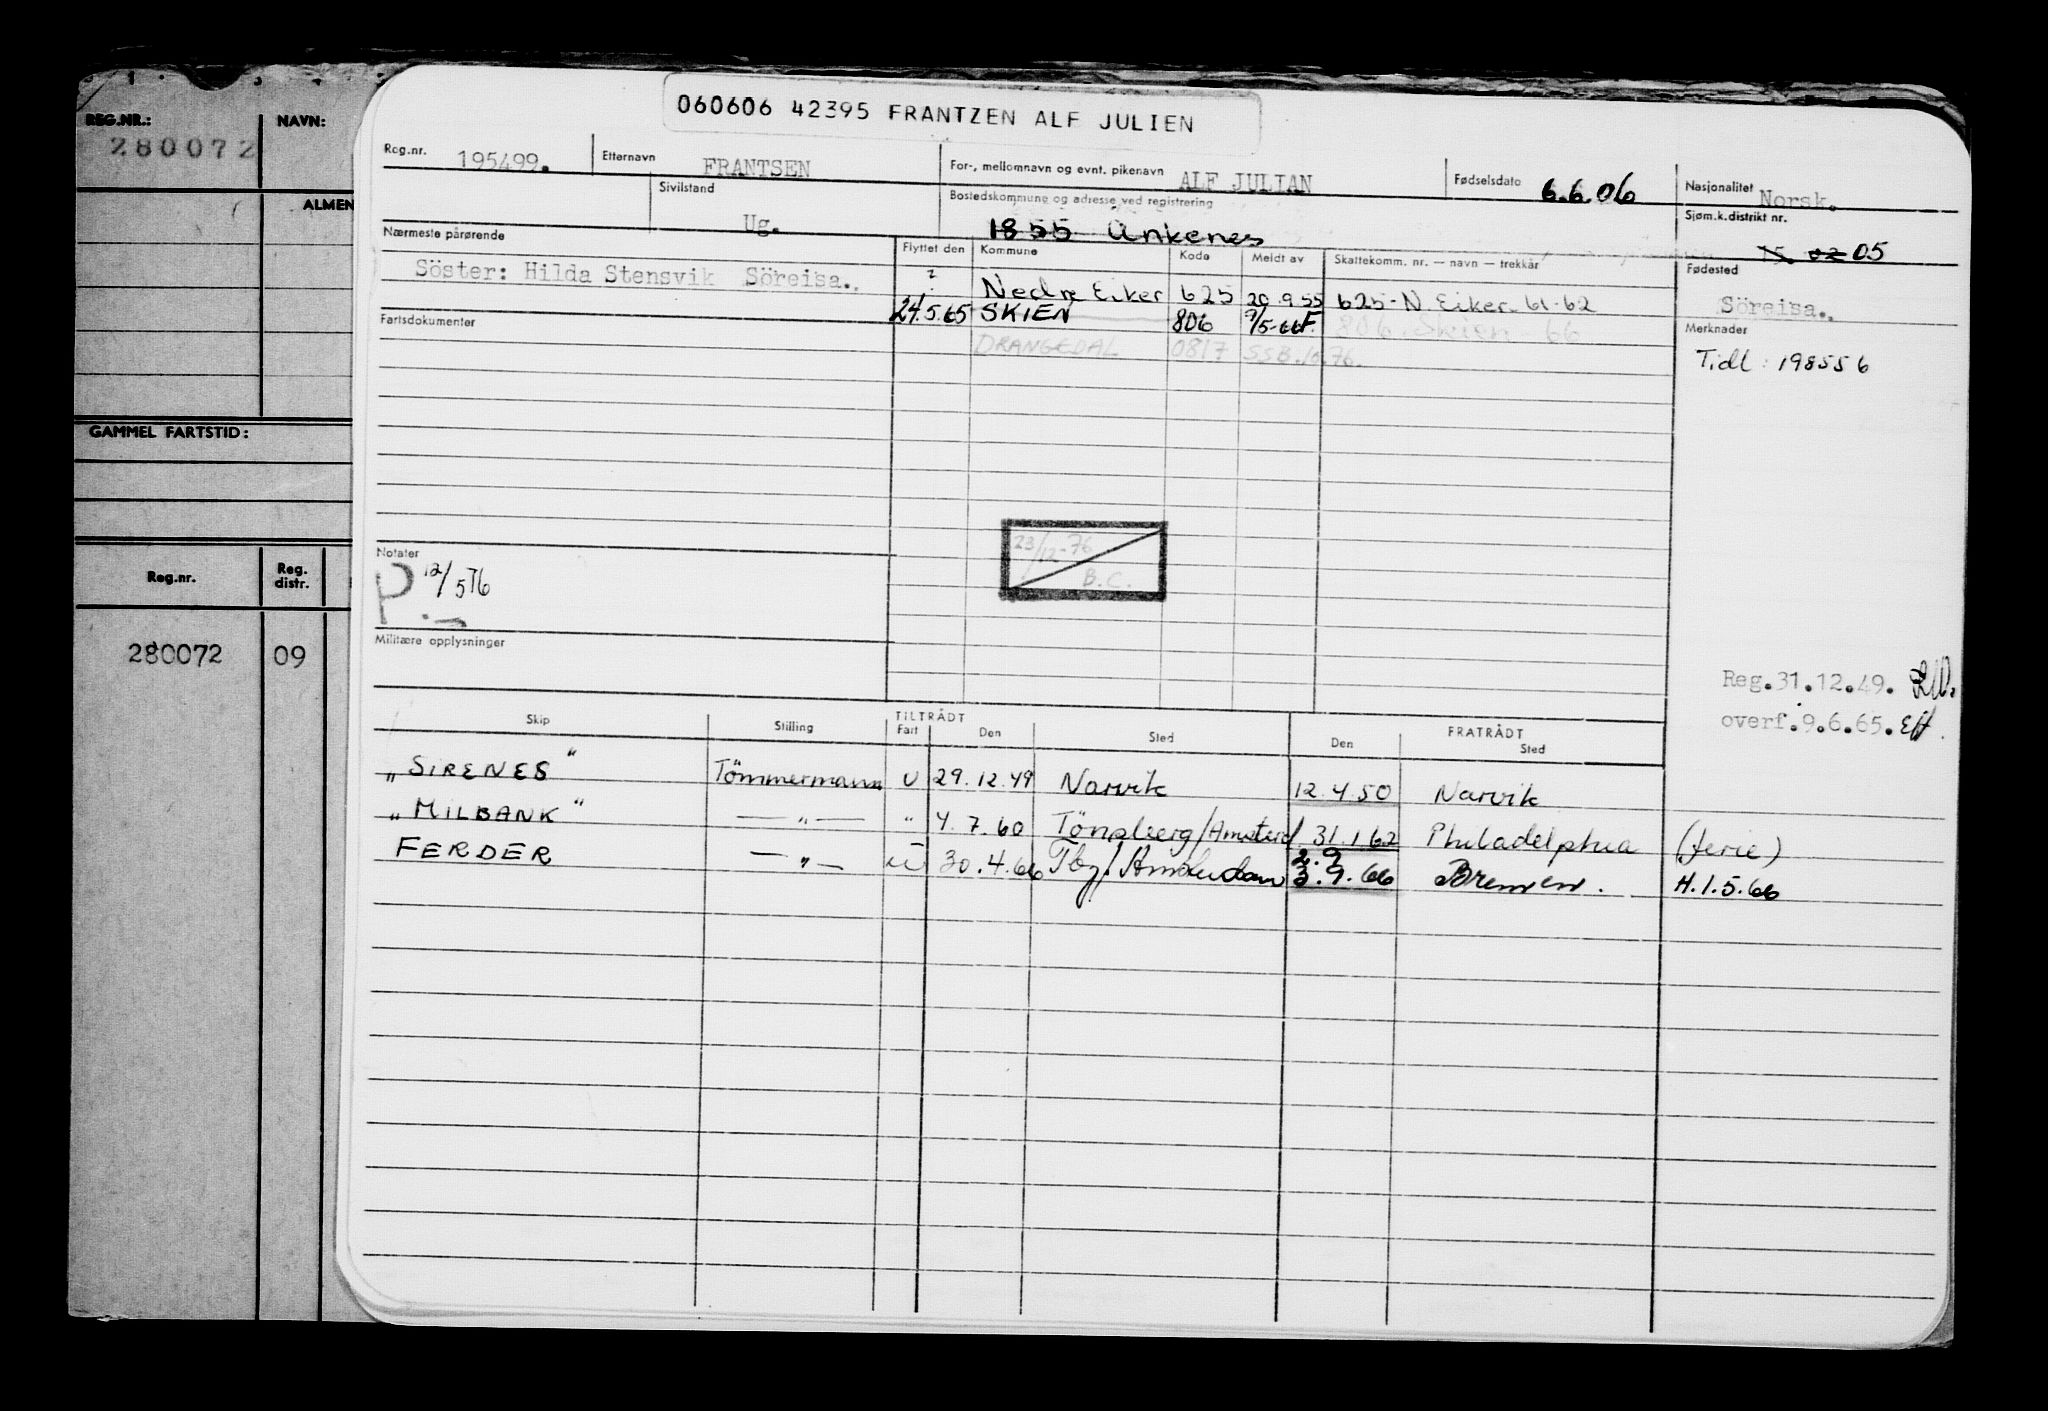 REG.NR.: NAVN:
280072
ALMEN
GAMMEL FARTSTID:
Reg.nr. Reg. distr.
280072 09
060606 42395 FRANTZEN ALF JULIEN
Reg.nr. 195499. Etternavn FRANTSEN For-, mellomnavn og evnt. pikenavn ALF JULIAN Fødselsdato 6.6.06 Nasjonalitet Norsk.
Sivilstand Ug. Bostedskommune og adresse ved registrering 1855 Ankenes Sjøm.k.distrikt nr. 15. 02 05
Nærmeste pårørende Flyttet den Kommune Kode Meldt av Skattekomm. nr. — navn — trekkår Fødested
Söster: Hilda Stensvik Söreisa. ? Nedre Eiker 625 20.9.55 625-N. Eiker. 61-62 Söreisa.
Fartsdokumenter 24.5.65 SKIEN 806 9/5-66F. 806. Skien - 66 Merknader
DRANGEDAL 0817 SSB.10.76. Tidl: 198556
23/12-76 B.C.
Notater
P. 12/576
Militære opplysninger
Reg.31.12.49.
overf.9.6.65.
Skip Stilling TILTRÅDT Fart Den Sted FRATRÅDT Den Sted
„SIRENES" Tömmermann U 29.12.49 Narvik 12.4.50 Narvik
„MILBANK" — „ — " 4.7.60 Tönsberg/Amsterd 31.1.62 Philadelphia (ferie)
FERDER — „ — U 30.4.66 Tbg/Amsterdam 2.9 3.9.66 Bremen. H.1.5.66